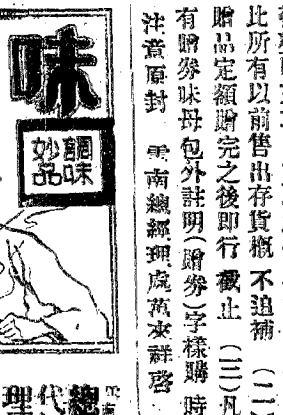 此所有以前售出存貨概不追補(二)
贈品定額贈完之後即行截止(三)凡
有贈券味母包外註明(贈券)字樣購時
注意原封 雲南總經理處萬來祥啓
味
調味
妙品
總
代
理